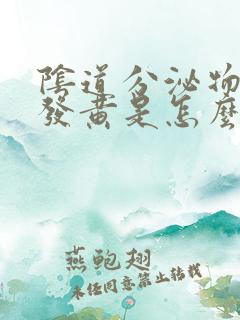 陰道分泌物
發黃是怎麼
燕鲍翅
未经同意禁止转载